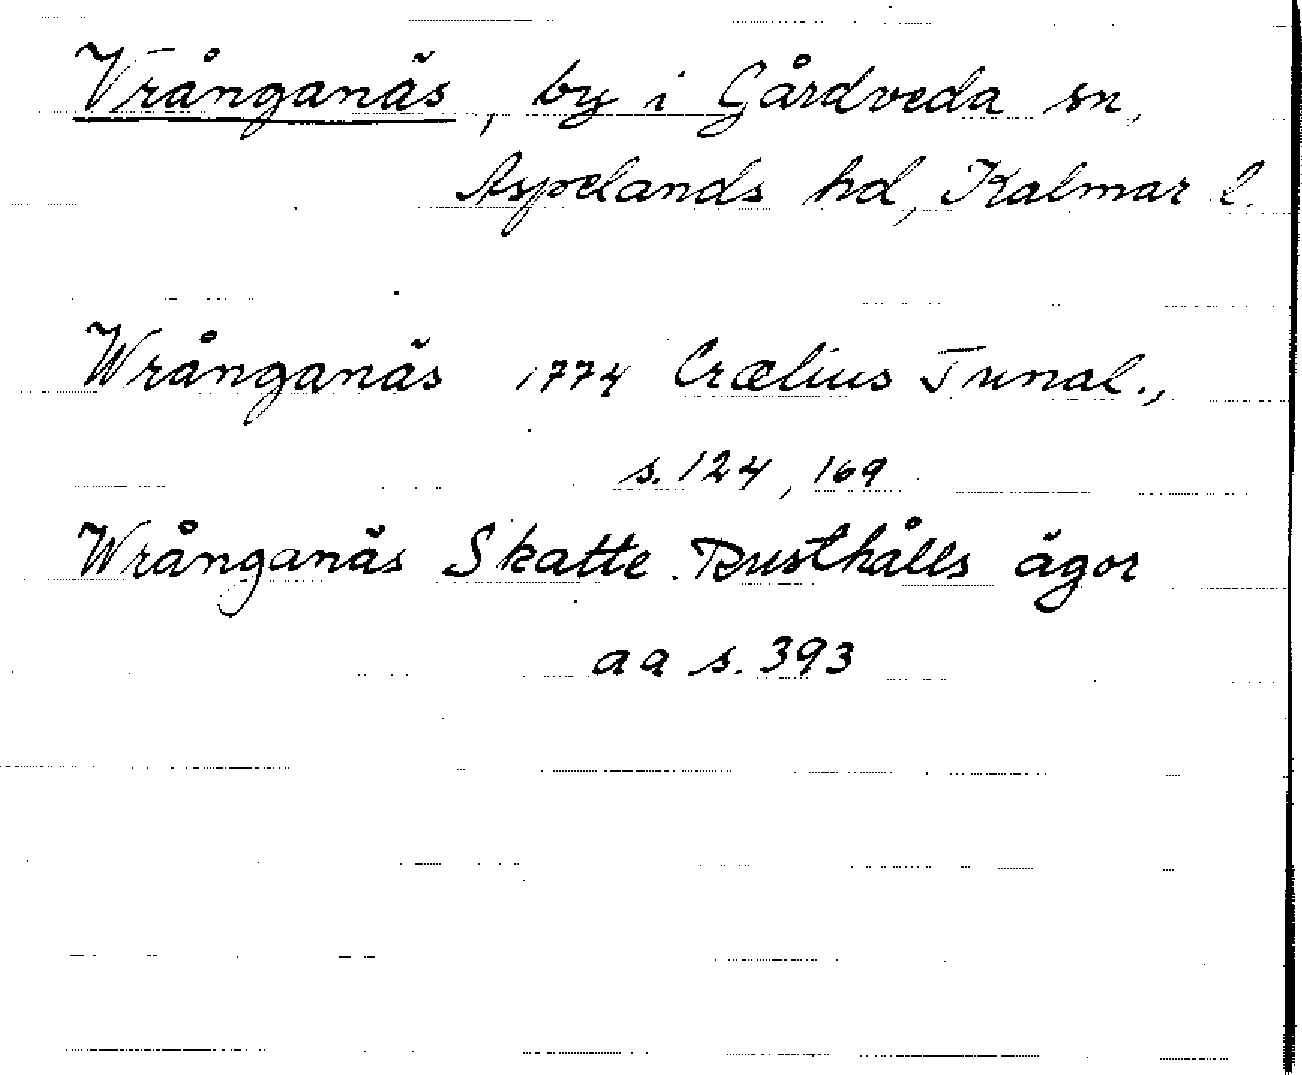 Vrånganäs, by i Gårdveda sn,
Aspelands hd, Kalmar l.
Wrånganäs 1774 Crælius Tunal.,
s. 124, 169
Wrånganäs Skatte Rusthålls ägor
aa s. 393